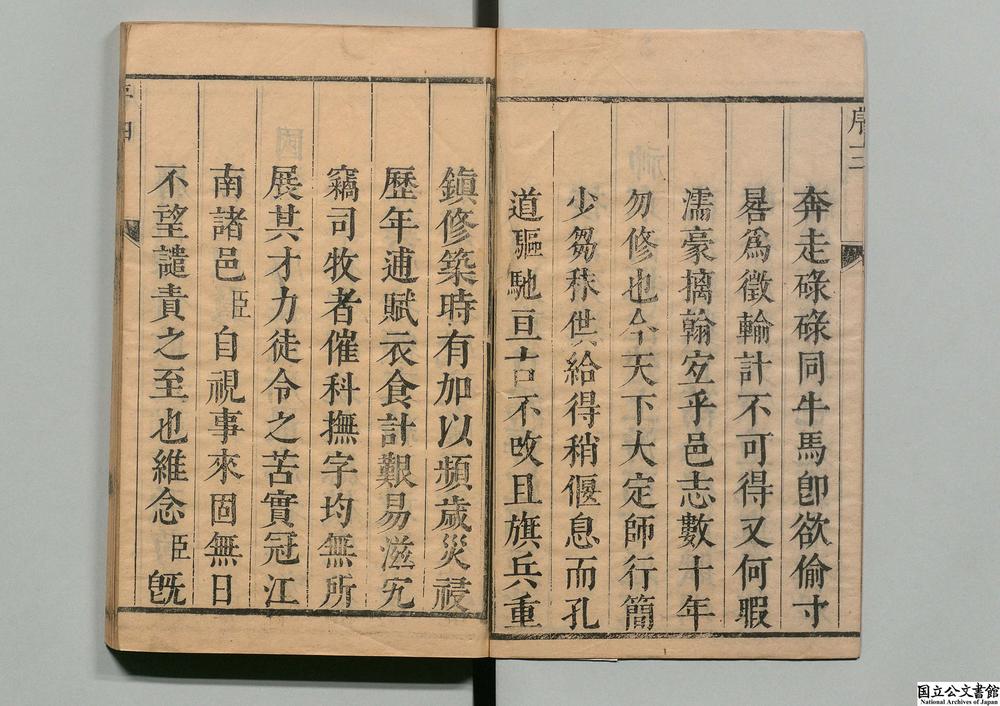 序三
奔走碌碌同牛馬卽欲偷寸
晷爲徵輸計不可得又何暇
濡豪摛翰㝎乎邑志數十年
勿修也今天下大定師行簡
少芻秣供給得稍偃息而孔
道驅馳亘古不改且旗兵重
鎮修築時有加以頻歲災祲
歷年逋賦衣食計艱易滋宄
竊司牧者催科撫字均無所
展其才力徒令之苦實冠江
南諸邑臣自視事來固無日
不望譴責之至也維念臣旣
國立公文書館
National Archives of Japan